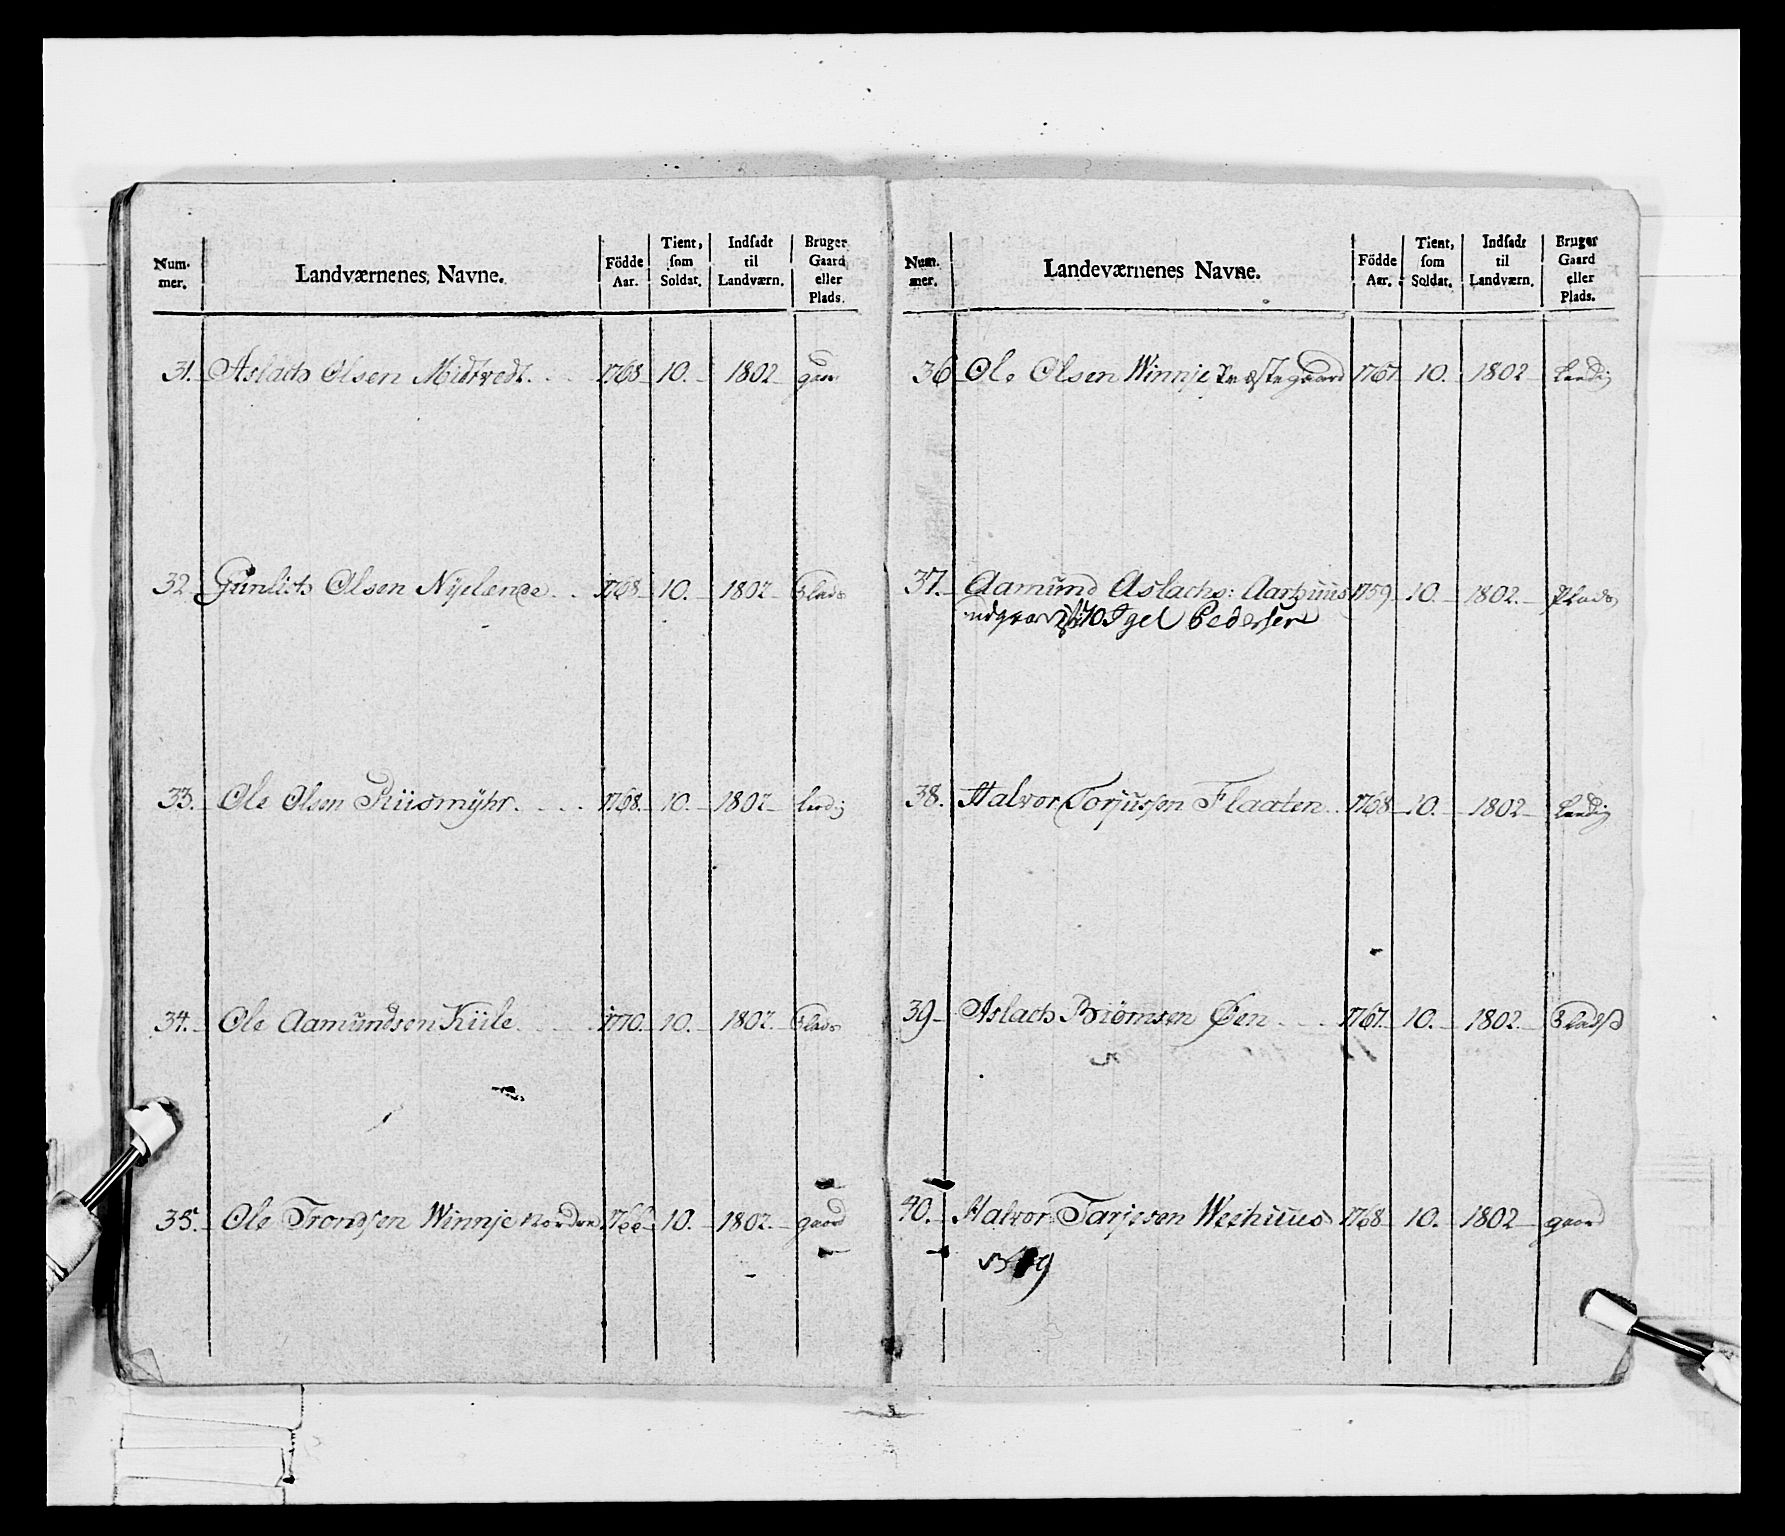 Num-
mer.
Landværnenes, Navne.
Födde
Aar.
Tient,
som
Soldat.
Indsadt
til
Landværn.
Bruger
Gaard
eller
Plads.
31. Aslach Olsen Midtvedt. 1768 10. 1802 gaar
32 Gunlich Olsen Nyelænde 1768 10. 1802 Plads
33. Ole Olsen Riismyhr. 1768. 10. 1802 ledig
34. Ole Aamundsen Kiile 1770. 10. 1802. Plads
35. Ole Trondsen Winnje Nordre 1766 10. 1802. gaard
Num.
mer.
Landeværnenes Navne.
Födde
Aar.
Tient,
som
Soldat.
Indsadt
til
Landværn.
Bruger
Gaard
eller
Plads.
36 Ole Olsen Winnje Præstegaard 1767 10. 1802 Leedig
37. Aamund Aslachs: Aarhuus 1759. 10. 1802. Plads
No 70. Igel Pedersen
38. Halvor Torjussen Flaaten 1768 10. 1802 Leedig
39 Aslach Biørnsen Øen 1767. 10. 1802. Pladß
40. Halvor Tarjesen Weehuus 1768 10. 1802 gaard